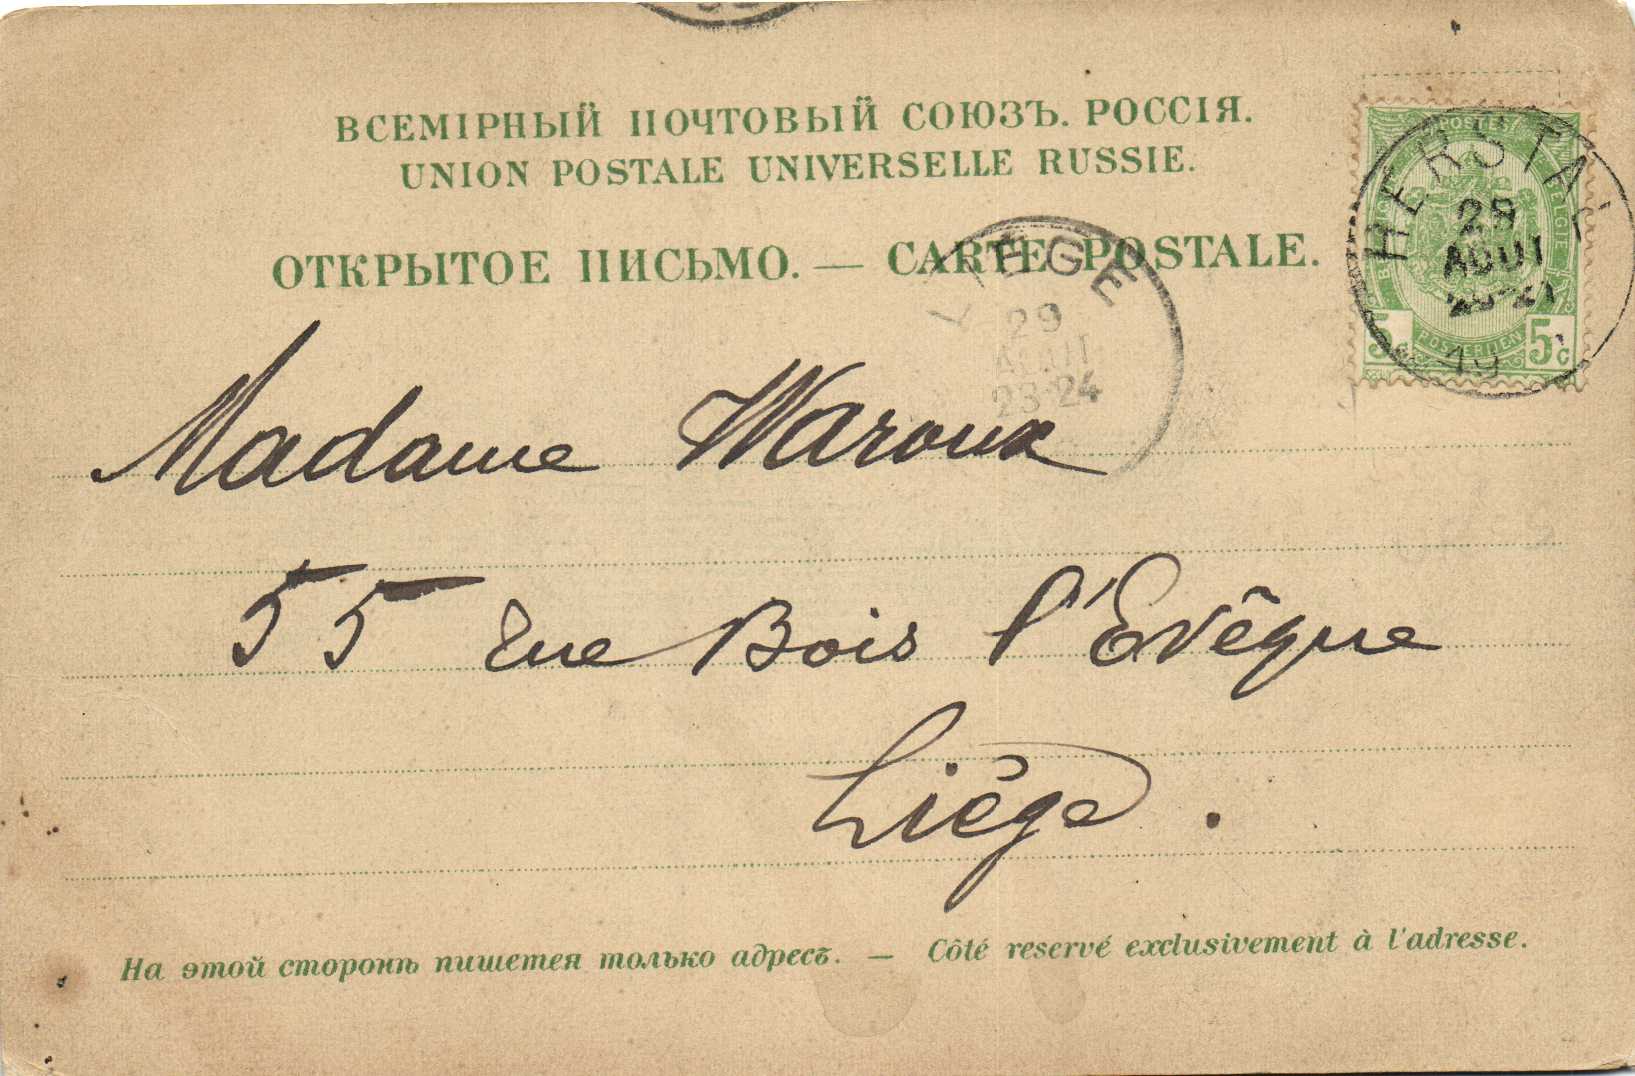 ВСЕМІРНЫЙ ПОЧТОВЫЙ СОЮЗЪ. РОССІЯ.
UNION POSTALE UNIVERSELLE RUSSIE.
ОТКРЫТОЕ ПИСЬМО. — CARTE POSTALE.
POSTES BELGIQUE BELGIE
5 POSTERIJEN 5c
HERSTAL
29
AOUT
19
LIÈGE
29
AOUT
23-24
Madame Waroux
55 Rue Bois l'Evêque
Liège.
На этой сторонѣ пишется только адресъ. — Côté reservé exclusivement à l'adresse.